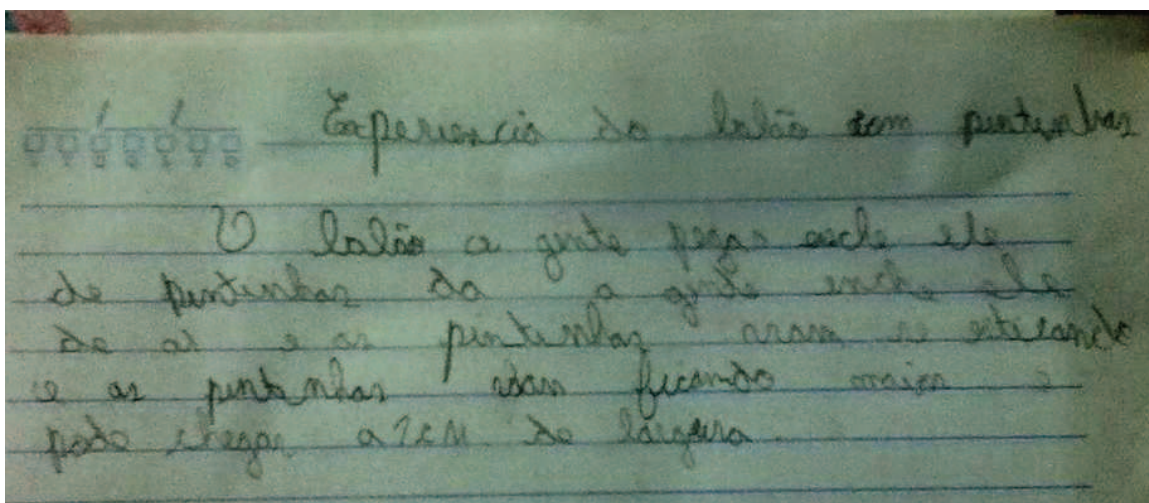 Experiencia do balão com pintinhas
O balão a gente pega enche ele
de pintinhas da a gente enche ele
de ar e as pintinhas vam se esticando
e as pintinhas vam ficando maior e
pode chegar a 2cM de largura.